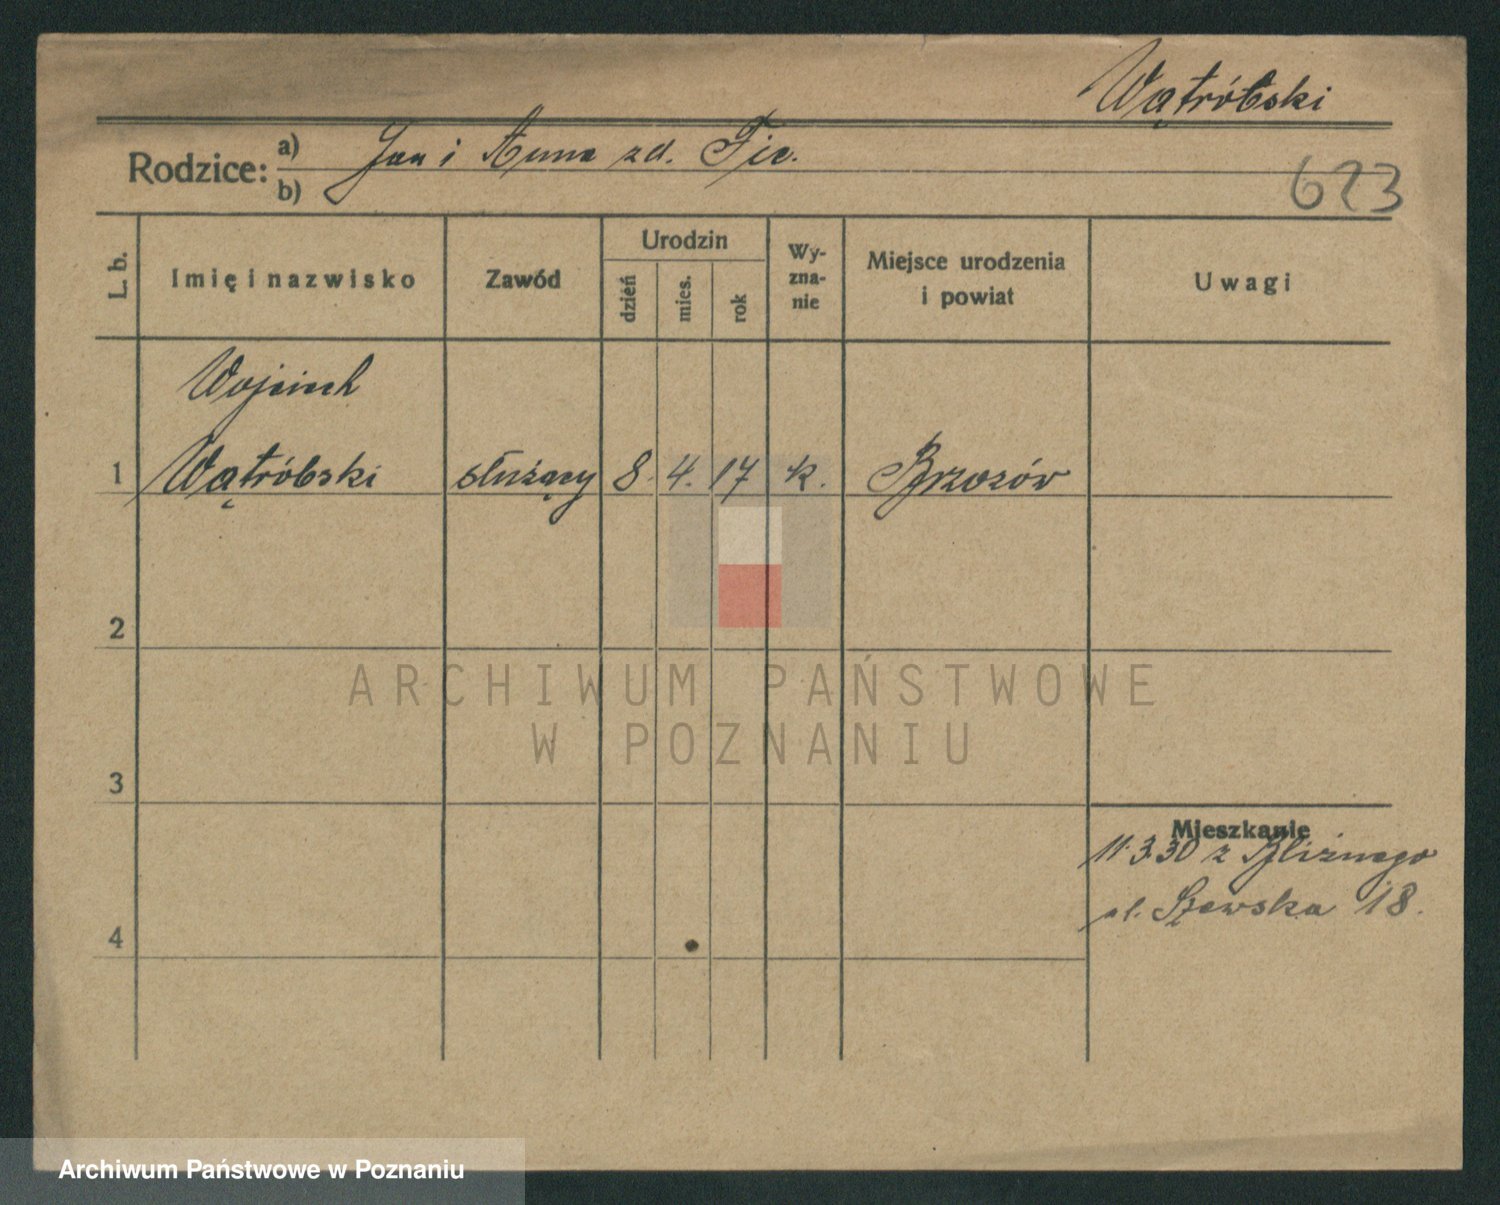 Wątróbski
Rodzice: a) Jan i Anna zd. Fic.
b)
623
L. b.
Imię i nazwisko
Zawód
Urodzin
dzień
mies.
rok
Wy-
zna-
nie
Miejsce urodzenia
i powiat
Uwagi
Wojciech
1 Wątróbski służący 8. 4. 17 k. Brzozów
2
3
4
Mieszkanie
11.3.30 z Bliznego
ul. Szewska 18.
ARCHIWUM PAŃSTWOWE
W POZNANIU
Archiwum Państwowe w Poznaniu